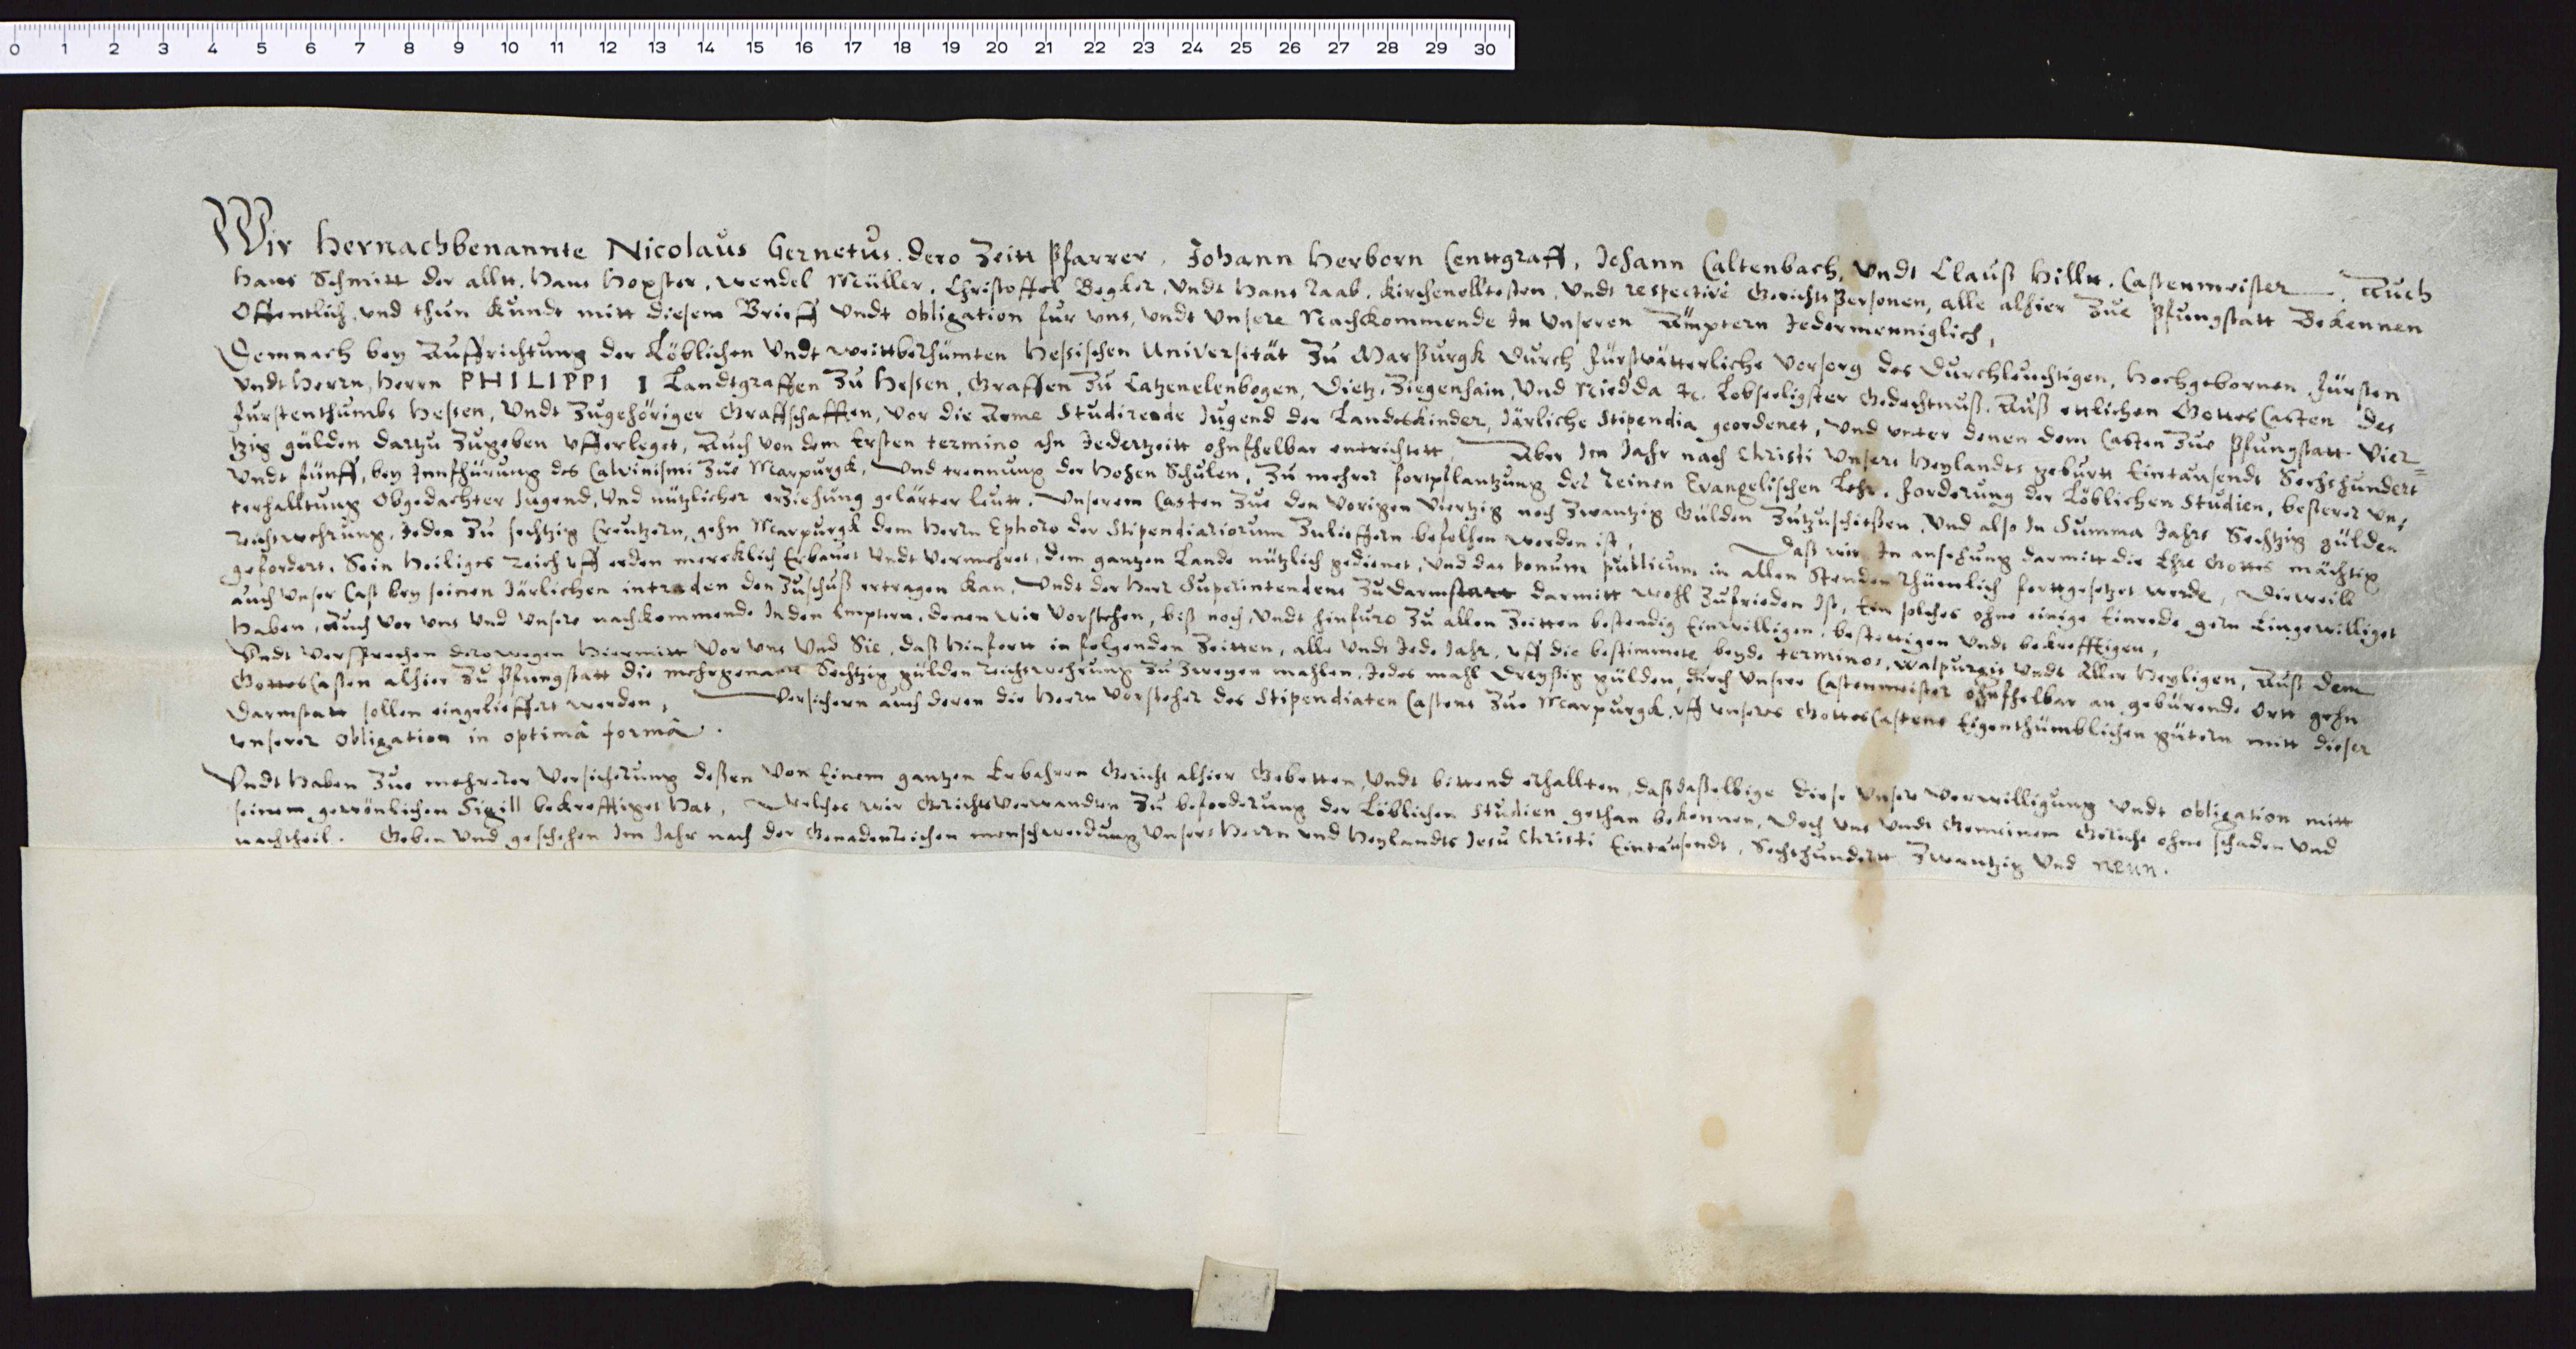 0 1 2 3 4 5 6 7 8 9 10 11 12 13 14 15 16 17 18 19 20 21 22 23 24 25 26 27 28 29 30
Wir Hernachbenannte Nicolaus Gernetus. dero Zeitt Pfarrer, Johann Herborn Centtgraff, Johann Caltenbach, Undt Clauß Hilltt. Castenmeister. Auch
Hans Schmitt der alltt. Hans Hopster, Wendel Müller. Christoffel Begker, Undt Hans Raab. Kirchenelltesten, Undt respectivè Gerichts Personen, alle alhier Zue Pfungstatt Bekennen
Offentlich, und thun kundt mitt diesem Brieff undt obligation fur uns, undt Unsere Nachkommende In Unseren Ämptern Jedermenniglich,
Demnach bey Auffrichtung der Löblichen Undt weittberhümten Hessischen Universität Zu Marpurgk durch fürstvätterliche vorsorg des Durchleuchtigen, Hochgebornen Fürsten
Undt Herrn, Herrn PHILIPPI I Landtgraffen Zu Hessen, Graffen Zu Catzenelenbogen, Dietz, Ziegenhain, Und Niedda &c. Lobseeligster Gedechtnuß. Auß ettlichen Gottes Casten des
Furstenthumbs Hessen, Undt Zugehöriger Graffschafften, vor die Arme Studirende Jugend der Landtskinder, Järliche Stipendia geordenet, Und unter denen dem Casten Zue Pfungstatt Vier=
tzig gülden dartzu Zugeben ufferleget, Auch von dem Ersten termino ahn Jedertzeitt ohnfhelbar entrichtett, Aber Im Jahr nach Christi Unsers Heylandts geburtt Eintausendt Sechshundert
Undt fünff, bey Innfhürung des Calvinismi Zue Marpurgk, Und trennung der Hohen Schulen, Zu mehrer fortpflantzung der Reinen Evangelischen Lehr, forderung der Löblichen Studien, besserer Un,
terhalltung Obgedachter Jugend, Und nützlicher erziehung gelärter leutt, Unserem Casten Zue den Vorigen Viertzig noch Zwantzig Gülden Zutzuschießen, Und also In Summa Jahrs Sechtzig gülden
Reichswehrung, Jeden Zu sechtzig Creutzern, gehn Marpurgk dem Herrn Ephoro der Stipendiariorum Zulieffern befolhen worden ist, Daß wir In ansehung darmitt die Ehre Gottes mächtig
gefordert, Sein Heiliges Reich uff erden mercklich Erbauet Undt vermehret, dem gantzen Lande nützlich gedienet, Und das bonum publicum in allen Stenden rhümlich forttgesetzet werde, Dieweill
auch Unser Cast bey seinen Järlichen intraden den Zuschuß ertragen kan, Undt der Herr Superintendens Zu Darmstatt darmitt wohl Zufrieden Ist, Ein solches ohne einige Einrede gern Eingewilliget
Haben, Auch vor uns Und Unsere nachkommende In den Emptern, denen wir vorstehen, biß noch, Undt hinfuro Zu allen Zeitten bestendig Einwilligen, bestettigen Undt bekrefftigen,
Undt versprechen derowegen Hiermitt Vor uns Und Sie, daß hinfortt in folgenden Zeitten, alle Undt Jede Jahr, uff die bestimmete beyde terminos, Walpurgis Undt Aller Heyligen, Auß dem
Gottes Casten alhier Zu Pfungstatt die mehrgenante Sechtzig gülden Reichswehrung Zu Zweyen mahlen, Jedes mahl dreyßig gülden, durch Unsere Castenmeister ohnfhelbar an gebürende Ortt gehn
Darmstatt sollen eingelieffert werden, Versichern auch deren die Herrn Vorsteher des Stipendiaten Castens Zue Marpurgk, uff unseres Gottes Castens Eigenthümblichen gütern mitt dieser
unserer Obligation in optimâ formâ.
Undt haben Zue mehrerer Versicherung deßen von Einem gantzen Erbahren Gericht alhier Gebetten, Undt bittend erhallten, daß daßelbige diese Unsere verwilligung Undt obligation mitt
seinem gewönlichen Sigill bekrefftiget Hat, Welches wir Gerichts Verwandten Zu beforderung der Löblichen Studien gethan bekennen, Doch uns Undt Gemeinem Gericht ohne schaden und
nachtheil. Geben Und geschehen Im Jahr nach der Genadenreichen menschwerdung Unsers Herrn und Heylandts Jesu Christi Eintausendt, Sechshundertt Zwantzig Und neun.